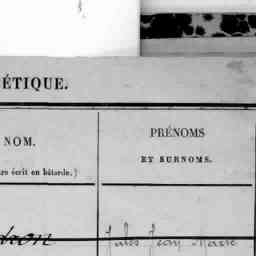 ÉTIQUE.
NOM.
PRÉNOMS
ET SURNOMS.
re écrit en bâtarde.)
Jules Jean Marie